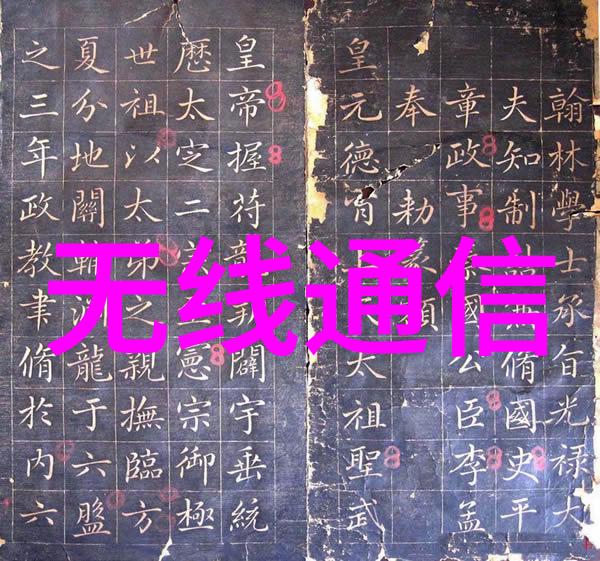 翰林學士承旨光祿大
夫知制誥兼脩國史平
章政事秦國公臣李孟
奉勑篆額
皇元德 太祖聖武
皇帝握符 闢宇垂統
厯太定二 憲宗御極
世祖以太弟之親撫臨方
夏分地關輔渊龍于六盤
之三年政教聿脩於內六
无线通信